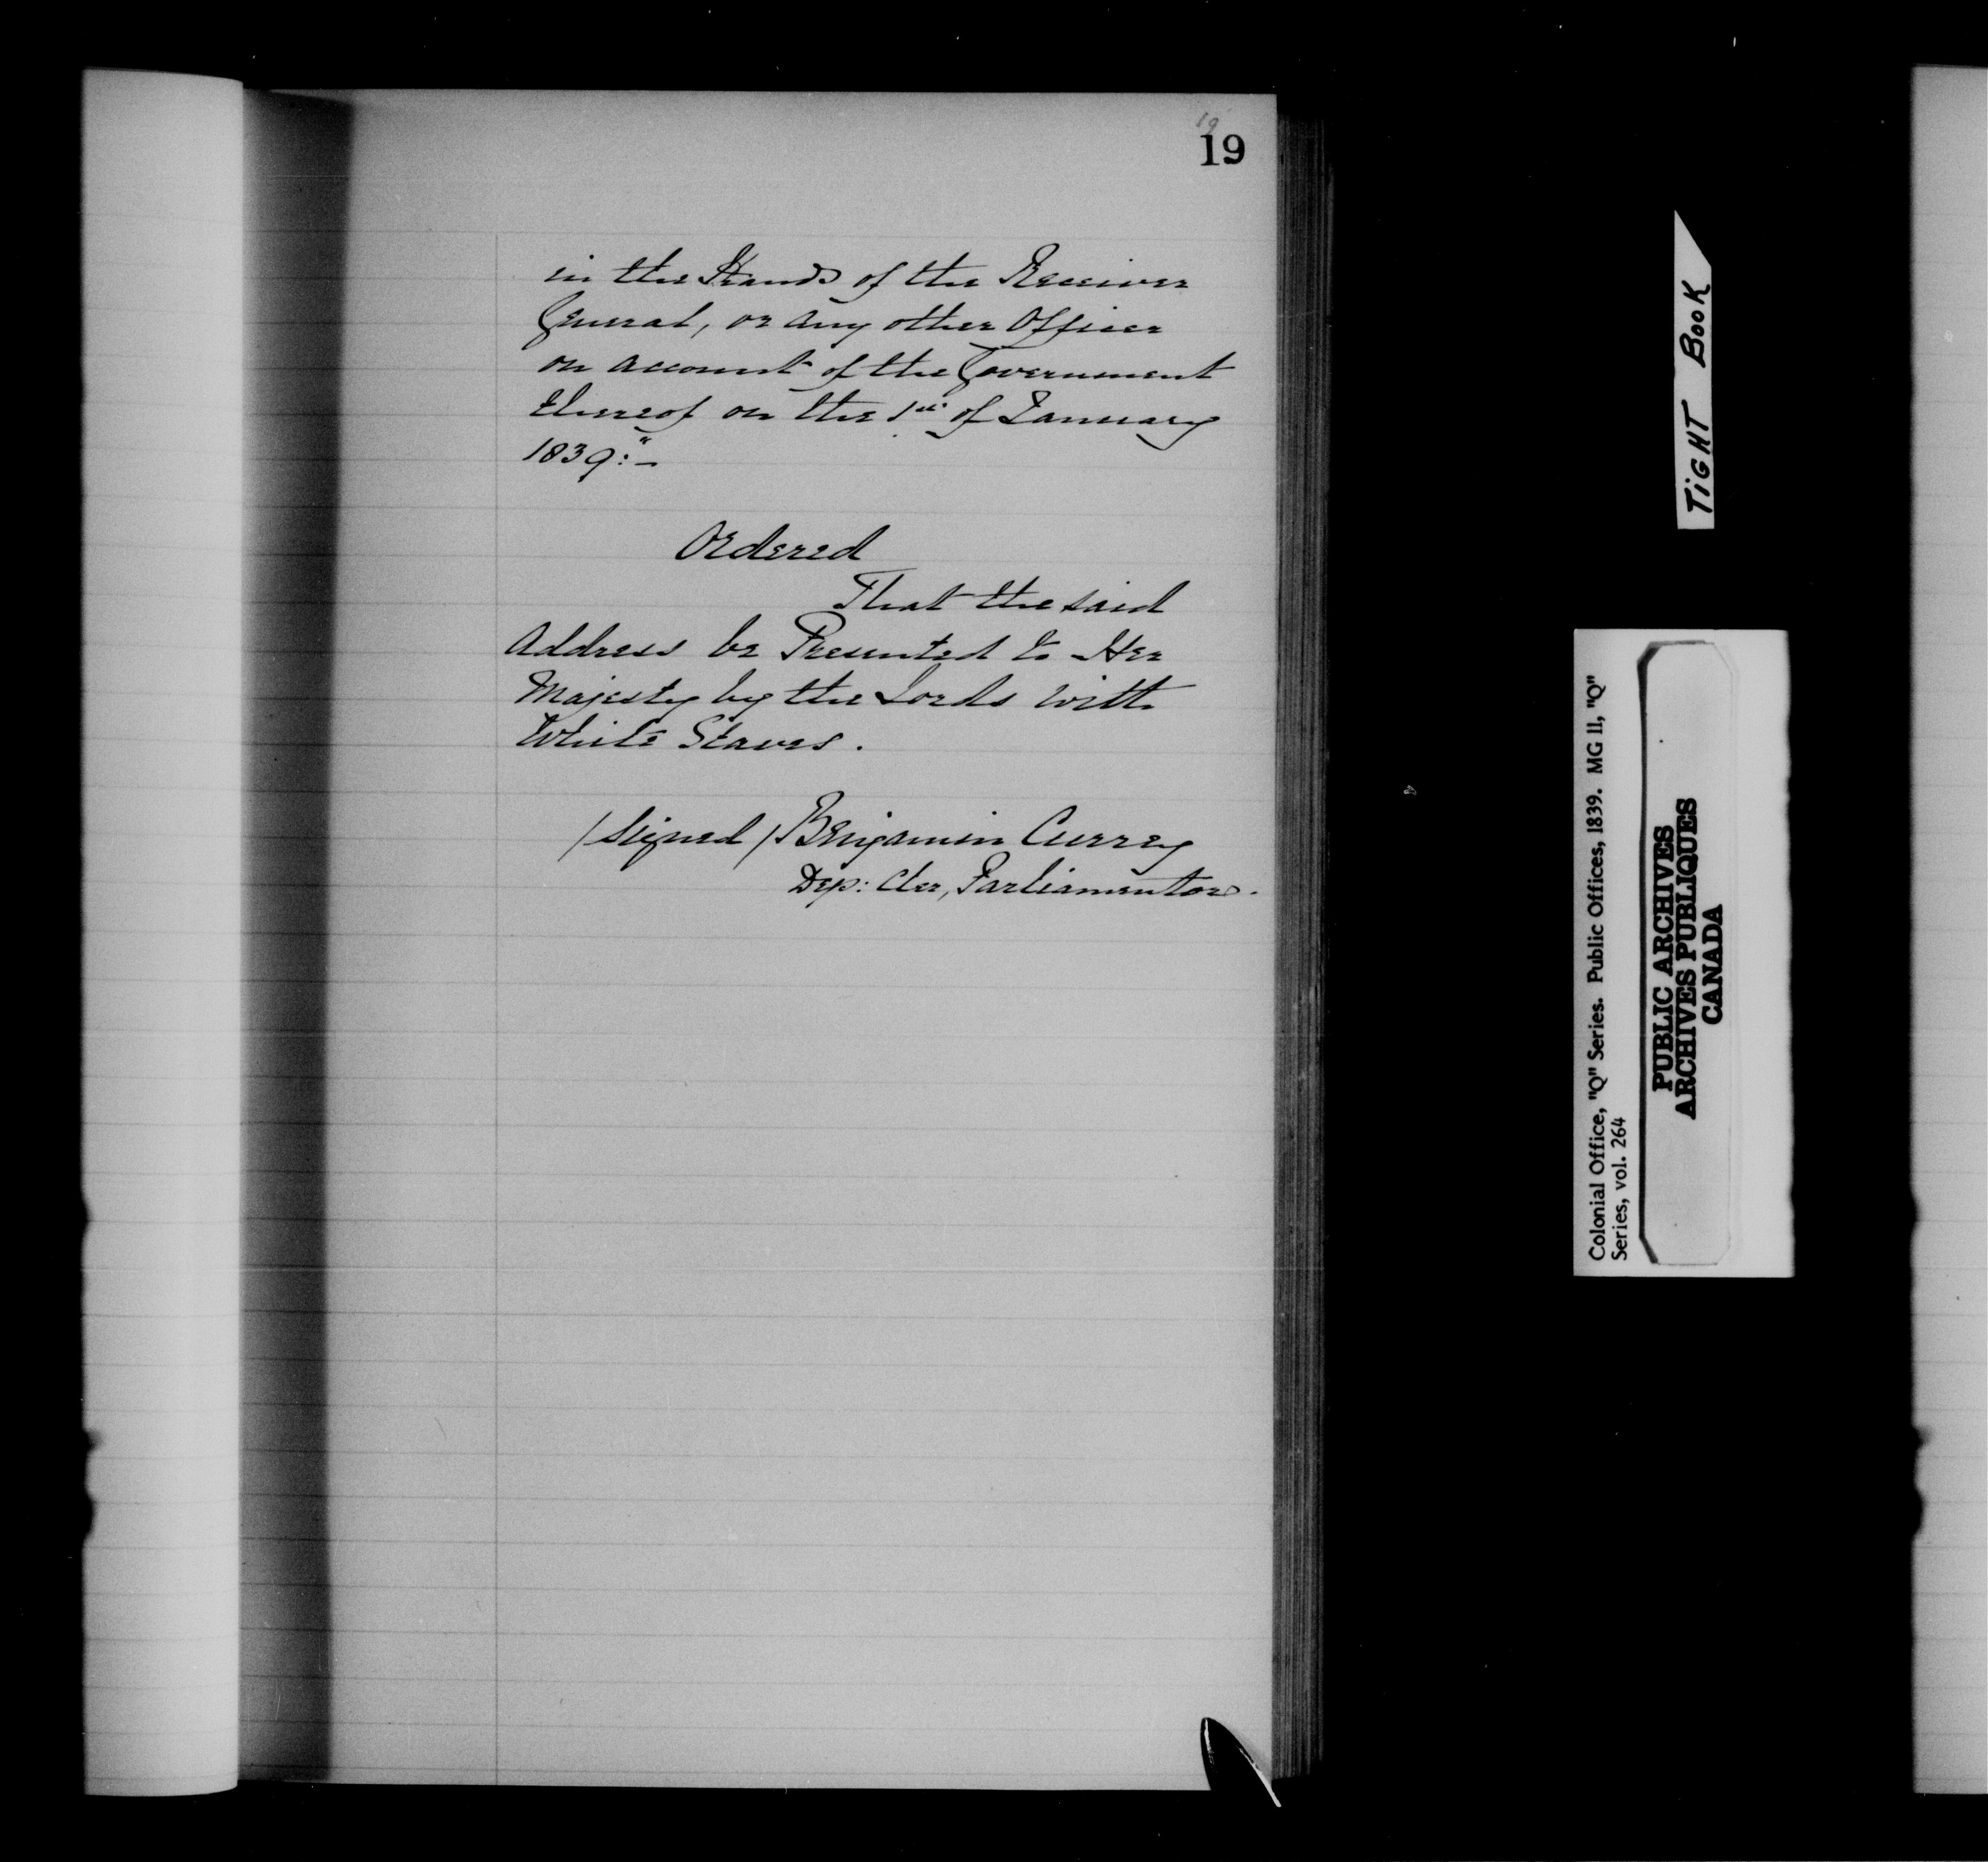 19
19
in the Hands of the Receiver
General, or any other Officer
on account of the Government
thereof on the 1st of January
1839:"—
Ordered
That the said
Address be Presented to Her
Majesty by the Lords with
White Staves.
/signed/ Benjamin Currey
Dep: Cler, Parliamentor.
TIGHT BOOK
Colonial Office, "Q" Series. Public Offices, 1839. MG 11, "Q"
Series, vol. 264
PUBLIC ARCHIVES
ARCHIVES PUBLIQUES
CANADA